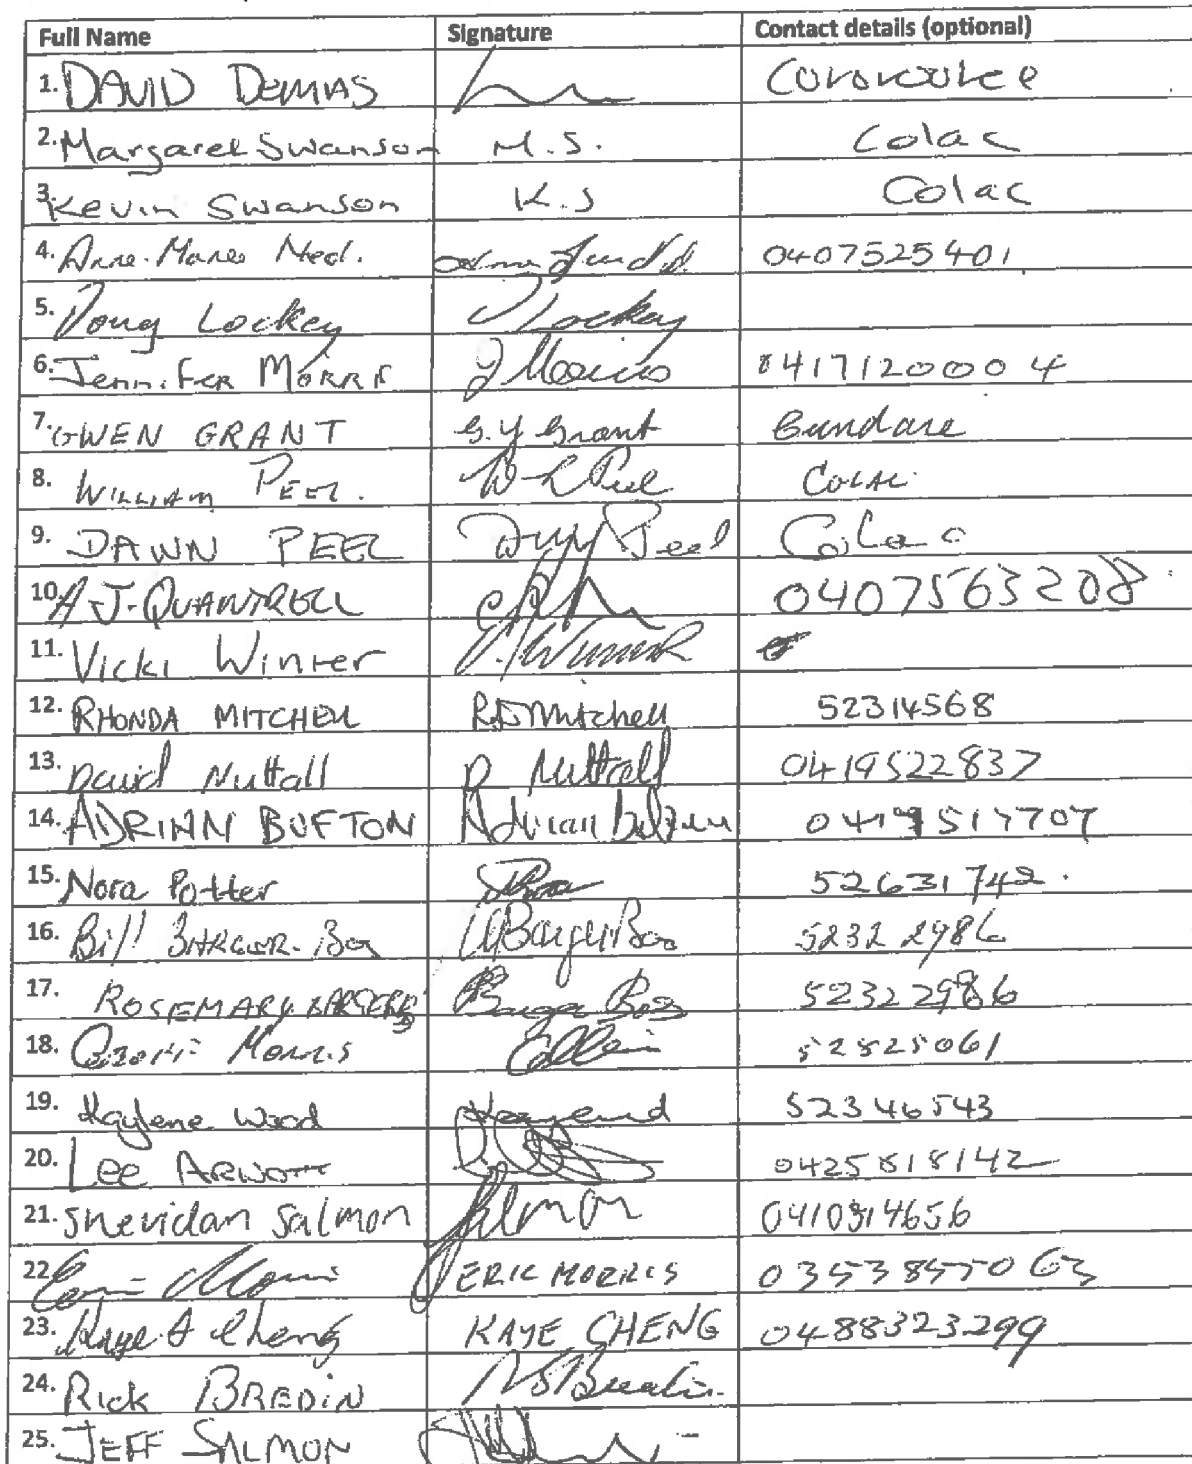 Full Name Signature Contact details (optional)
1. DAVID DEMAS Cororooke
2. Margaret Swanson M.S. Colac
3. Kevin Swanson K.S Colac
4. Anne-Maree 0407525401
5. Doug Lockey D Lockey
6. Jennifer Morris J Morris 0417120004
7. GWEN GRANT G.Y Grant
8. William PEEL. W L Peel Colac
9. DAWN PEEL Peel Colac
10. A J. QUANTRELL 0407563208
11. Vicki Winter V. Winter
12. RHONDA MITCHELL R.D Mitchell 52314568
13. David Nuttall D Nuttall 0419522837
14. ADRIAN BUFTON Adrian Bufton 0419517707
15. Nora Potter 52631742.
16. Bill BARGER-Bos Barger Bos 5232 2986
17. ROSEMARY BARGER B Barger Bos 52322986
18. Morris 52825061
19. Kaylene Wood 52346543
20. Lee Arnott 0425818142
21. Sheridan Salmon Salmon 0410314656
22. Eric Morris ERIC MORRIS
23. Kaye A Cheng KAYE CHENG 0488323299
24. Rick BREDIN Bredin
25. JEFF SALMON